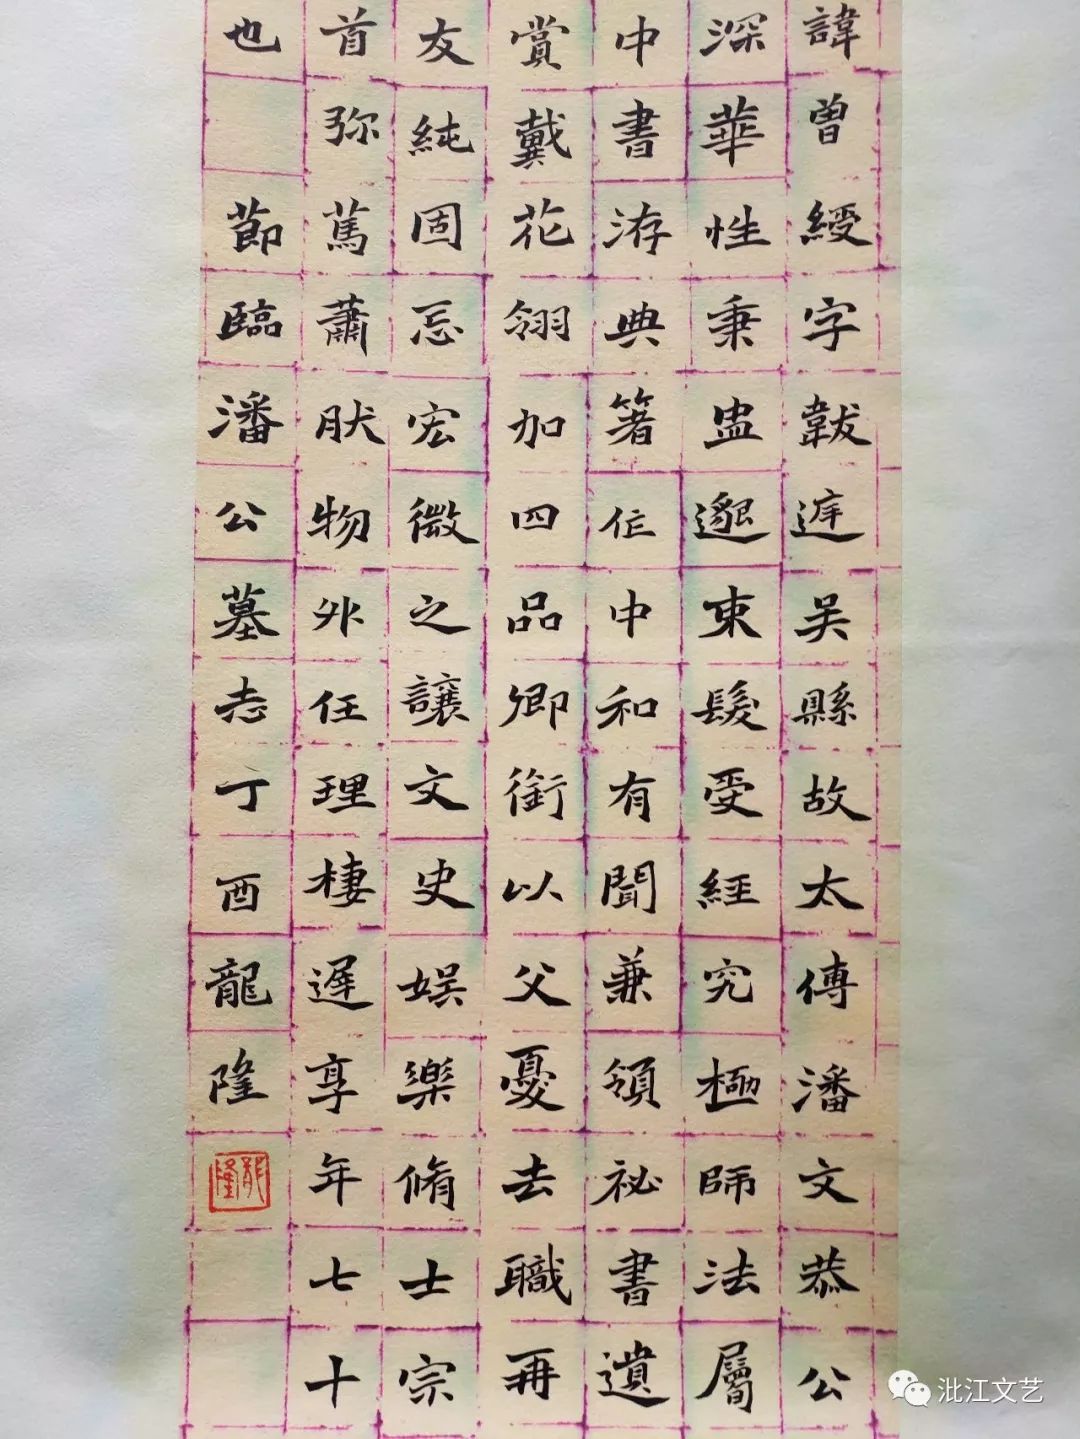 諱曾綬字韍遲吴縣故太傅潘文恭公
深華性秉盅邈束髮受經究極師法屬
中書洊典箸作中和有聞兼領祕書遺
賞戴花翎加四品卿銜以父憂去職再
友純固忘宏微之讓文史娱樂脩士宗
首弥蔿蕭肰物外任理棲遲享年七十
也
節臨潘公墓志丁酉龍隆
龍隆
沘江文艺